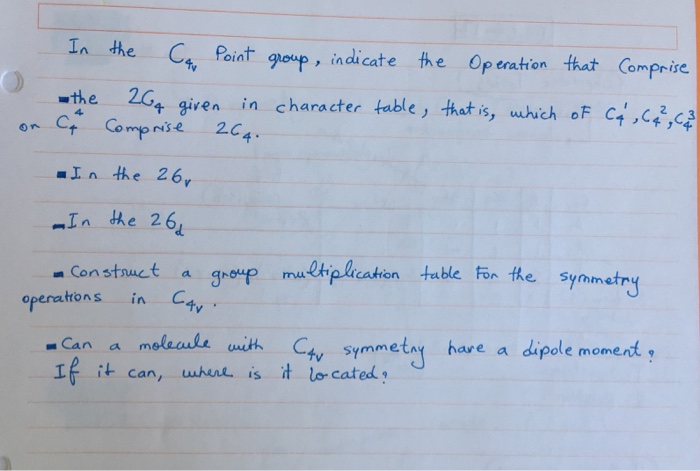 In the C4v Point group, indicate the Operation that Comprise
- the 2C4 given in character table, that is, which of C4^1, C4^2, C4^3
or C4^4 Comprise 2C4.
- In the 2σv
- In the 2σd
- Construct a group multiplication table For the symmetry
operations in C4v.
- Can a molecule with C4v symmetry have a dipole moment?
If it can, where is it located?